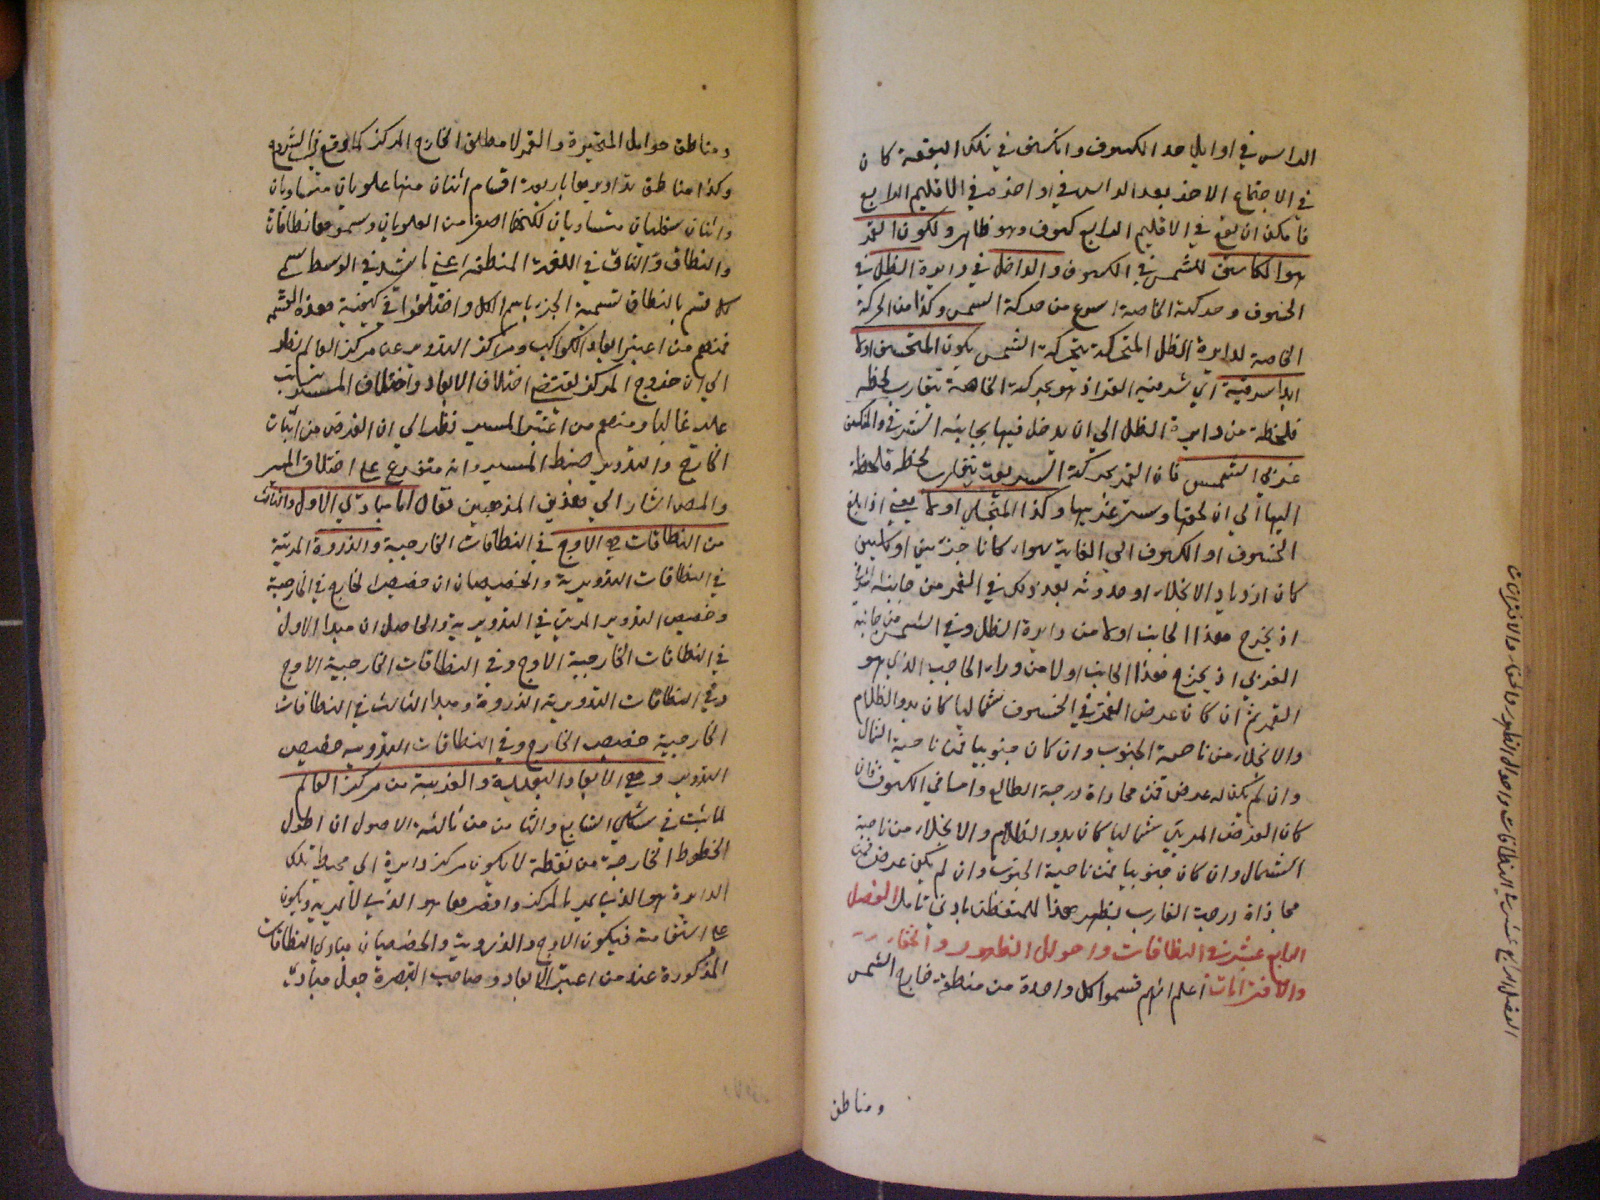 الراس في اوايل حد الكسوف وانكسفت في تلك البقعة كان
في الاجتماع الاخر بعد الراس في اواخره في الاقليم الرابع
فامكن ان يقع في الاقليم الرابع كسوف وهو ظاهر ولكون القمر
هو الكاسف للشمس في الكسوف والداخل في دايرة الظل في
الخسوف وحركته الخاصة اسرع من حركة الشمس وكذا من الحركة
الخاصة لدايرة الظل المتحركة بحركة الشمس يكون المنخسف اولا
ابدا شرقيه اي شرقية القمر اذ هو بحركته الخاصة يتقارب لحظه
فلحظة من دايرة الظل الي ان يدخل فيها بجانبه الشرقي والمنكسف
غربي الشمس فان القمر بحركته السريعة يتقارب لحظه فلحظة
اليها الي ان لحقها وستر غربيها وكذا المنجلي اولا يعني اذا بلغ
الخسوف او الكسوف الي الغاية سواء كانا جزئيين او كليين
كان ازدياد الانجلاء او حدوثه بعد ذلك في القمر من جانبه الشرقي
اذ يخرج هذا الجانب اولا من دايرة الظل وفي الشمس من جانبه
الغربي اذ يخرج هذا الجانب اولا من وراء الحاجب الذي هو
القمر ثم ان كان عرض القمر في الخسوف شماليا كان بدو الظلام
والانجلاء من ناحية الجنوب وان كان جنوبيا فمن ناحية الشمال
وان لم يكن له عرض فمن محاذاة درجة الطالع واما في الكسوف فان
كان العرض المرئي شماليا كان بدو الظلام والانجلاء من ناحية
الشمال وان كان جنوبيا فمن ناحية الجنوب وان لم يكن عرض فمن
محاذاة درجة الغارب يظهر هذا للمتفطن بادني تامل الفصل
الرابع عشر في النطاقات واحوال الظهور والخفاء
والاقترانات اعلم انهم قسموا كل واحدة من منطقة خارج الشمس
ومناطق
الفصل الرابع عشر في النطاقات واحوال الظهور والخفاء والاقترانات
ومناطق حوامل المتحيرة والقمر لا مطلق الخارج المركز كما وقع في الشروح
وكذا مناطق تداويرها باربعة اقسام اثنان منها علويان متساويان
واثنان سفليان متساويان لكنهما اصغر من العلويان وسموها نطاقات
والنطاق والنطاق في اللغة المنطقه اعني ما يشد في الوسط سمي
كل قسم بالنطاق تسمية الجزء باسم الكل واختلفوا في كيفية هذه القسمة
فمنهم من اعتبر ابعاد الكواكب ومراكز التدوير عن مركز العالم نظرا
الي ان خروج المركز يقتضي اختلاف الابعاد واختلاف المسير يترتب
عليه غالبا ومنهم من اعتبر المسير نظرا الي ان الغرض من اثبات
الخارج والتدوير ضبط المسير وانه متفرع على اختلاف المسير
والمص اشار الي هذين المذهبين فقال اما مبادئ الاول والثالث
من النطاقات هو الاوج في النطاقات الخارجية والذروة المرئية
في النطاقات التدويرية والحضيضان ان حضيض الخارج في الخارجية
وحضيض التدوير المرئي في التدويرية والحاصل ان مبدا الاول
في النطاقات الخارجية الاوج وفي النطاقات الخارجية الاوج
وفي النطاقات التدويرية الذروة ومبدا الثالث في النطاقات
الخارجية حضيض الخارج وفي النطاقات التدويريه حضيض
التدوير وهي الابعاد البعيدة والقريبة من مركز العالم
لما ثبت في شكلي السابع والثامن من ثالثة الاصول ان اطول
الخطوط الخارجة من نقطة لا يكون مركز دايرة الي محيط تلك
الدايرة هو الذي يمر بالمركز واقصرها هو الذي لا يمر به ويكون
على استقامته فيكون الاوج والذروة والحضيضان مبادي النطاقات
المذكورة عند من اعتبر الابعاد وصاحب التبصرة جعل مبادئ